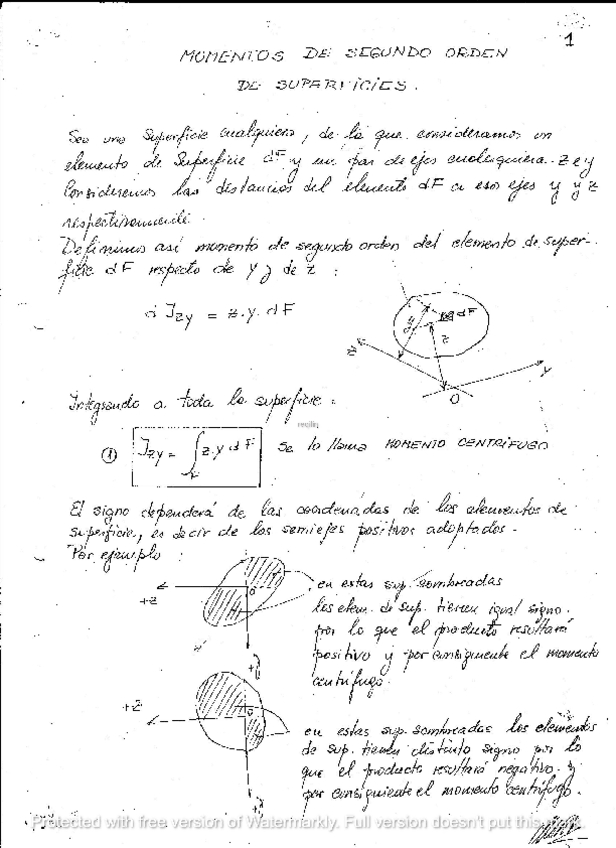 1
MOMENTOS DE SEGUNDO ORDEN
DE SUPERFICIES.
Sea una Superficie cualquiera, de la que consideramos un
elemento de Superficie dF y un par de ejes cualesquiera z e y
Consideremos las distancias del elemento dF a esos ejes y y z
respectivamente.
Definimos así momento de segundo orden del elemento de super-
ficie dF respecto de y y de z :
d Jzy = z.y.dF
y
dF
z
z
y
O
Integrando a toda la superficie :
① Jzy = ∫F z.y dF se lo llama MOMENTO CENTRÍFUGO
El signo dependerá de las coordenadas de los elementos de
superficie, es decir de los semiejes positivos adoptados.
Por ejemplo :
+z
O
+y
en estas sup. sombreadas
los elem. de sup. tienen igual signo.
por lo que el producto resultará
positivo y por consiguiente el momento
centrífugo.
+z
O
+y
en estas sup. sombreadas los elementos
de sup. tienen distinto signo por lo
que el producto resultará negativo y
por consiguiente el momento centrífugo.
Protected with free version of Watermarkly. Full version doesn't put this mark.